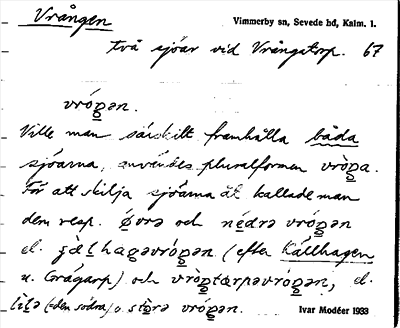 Vrången
Vimmerby sn, Sevede hd, Kalm. l.
två sjöar vid Vrångstorp. 67
vrógən.
Ville man särskilt framhålla båda
sjöarna, användes pluralformen vróga.
För att skilja sjöarna åt kallade man
dem resp. övrə och nedrə vrógən
el. (efter Källhagen
u. Grågarp) och el.
(=den södra) o. störə vrógən.
Ivar Modéer 1933